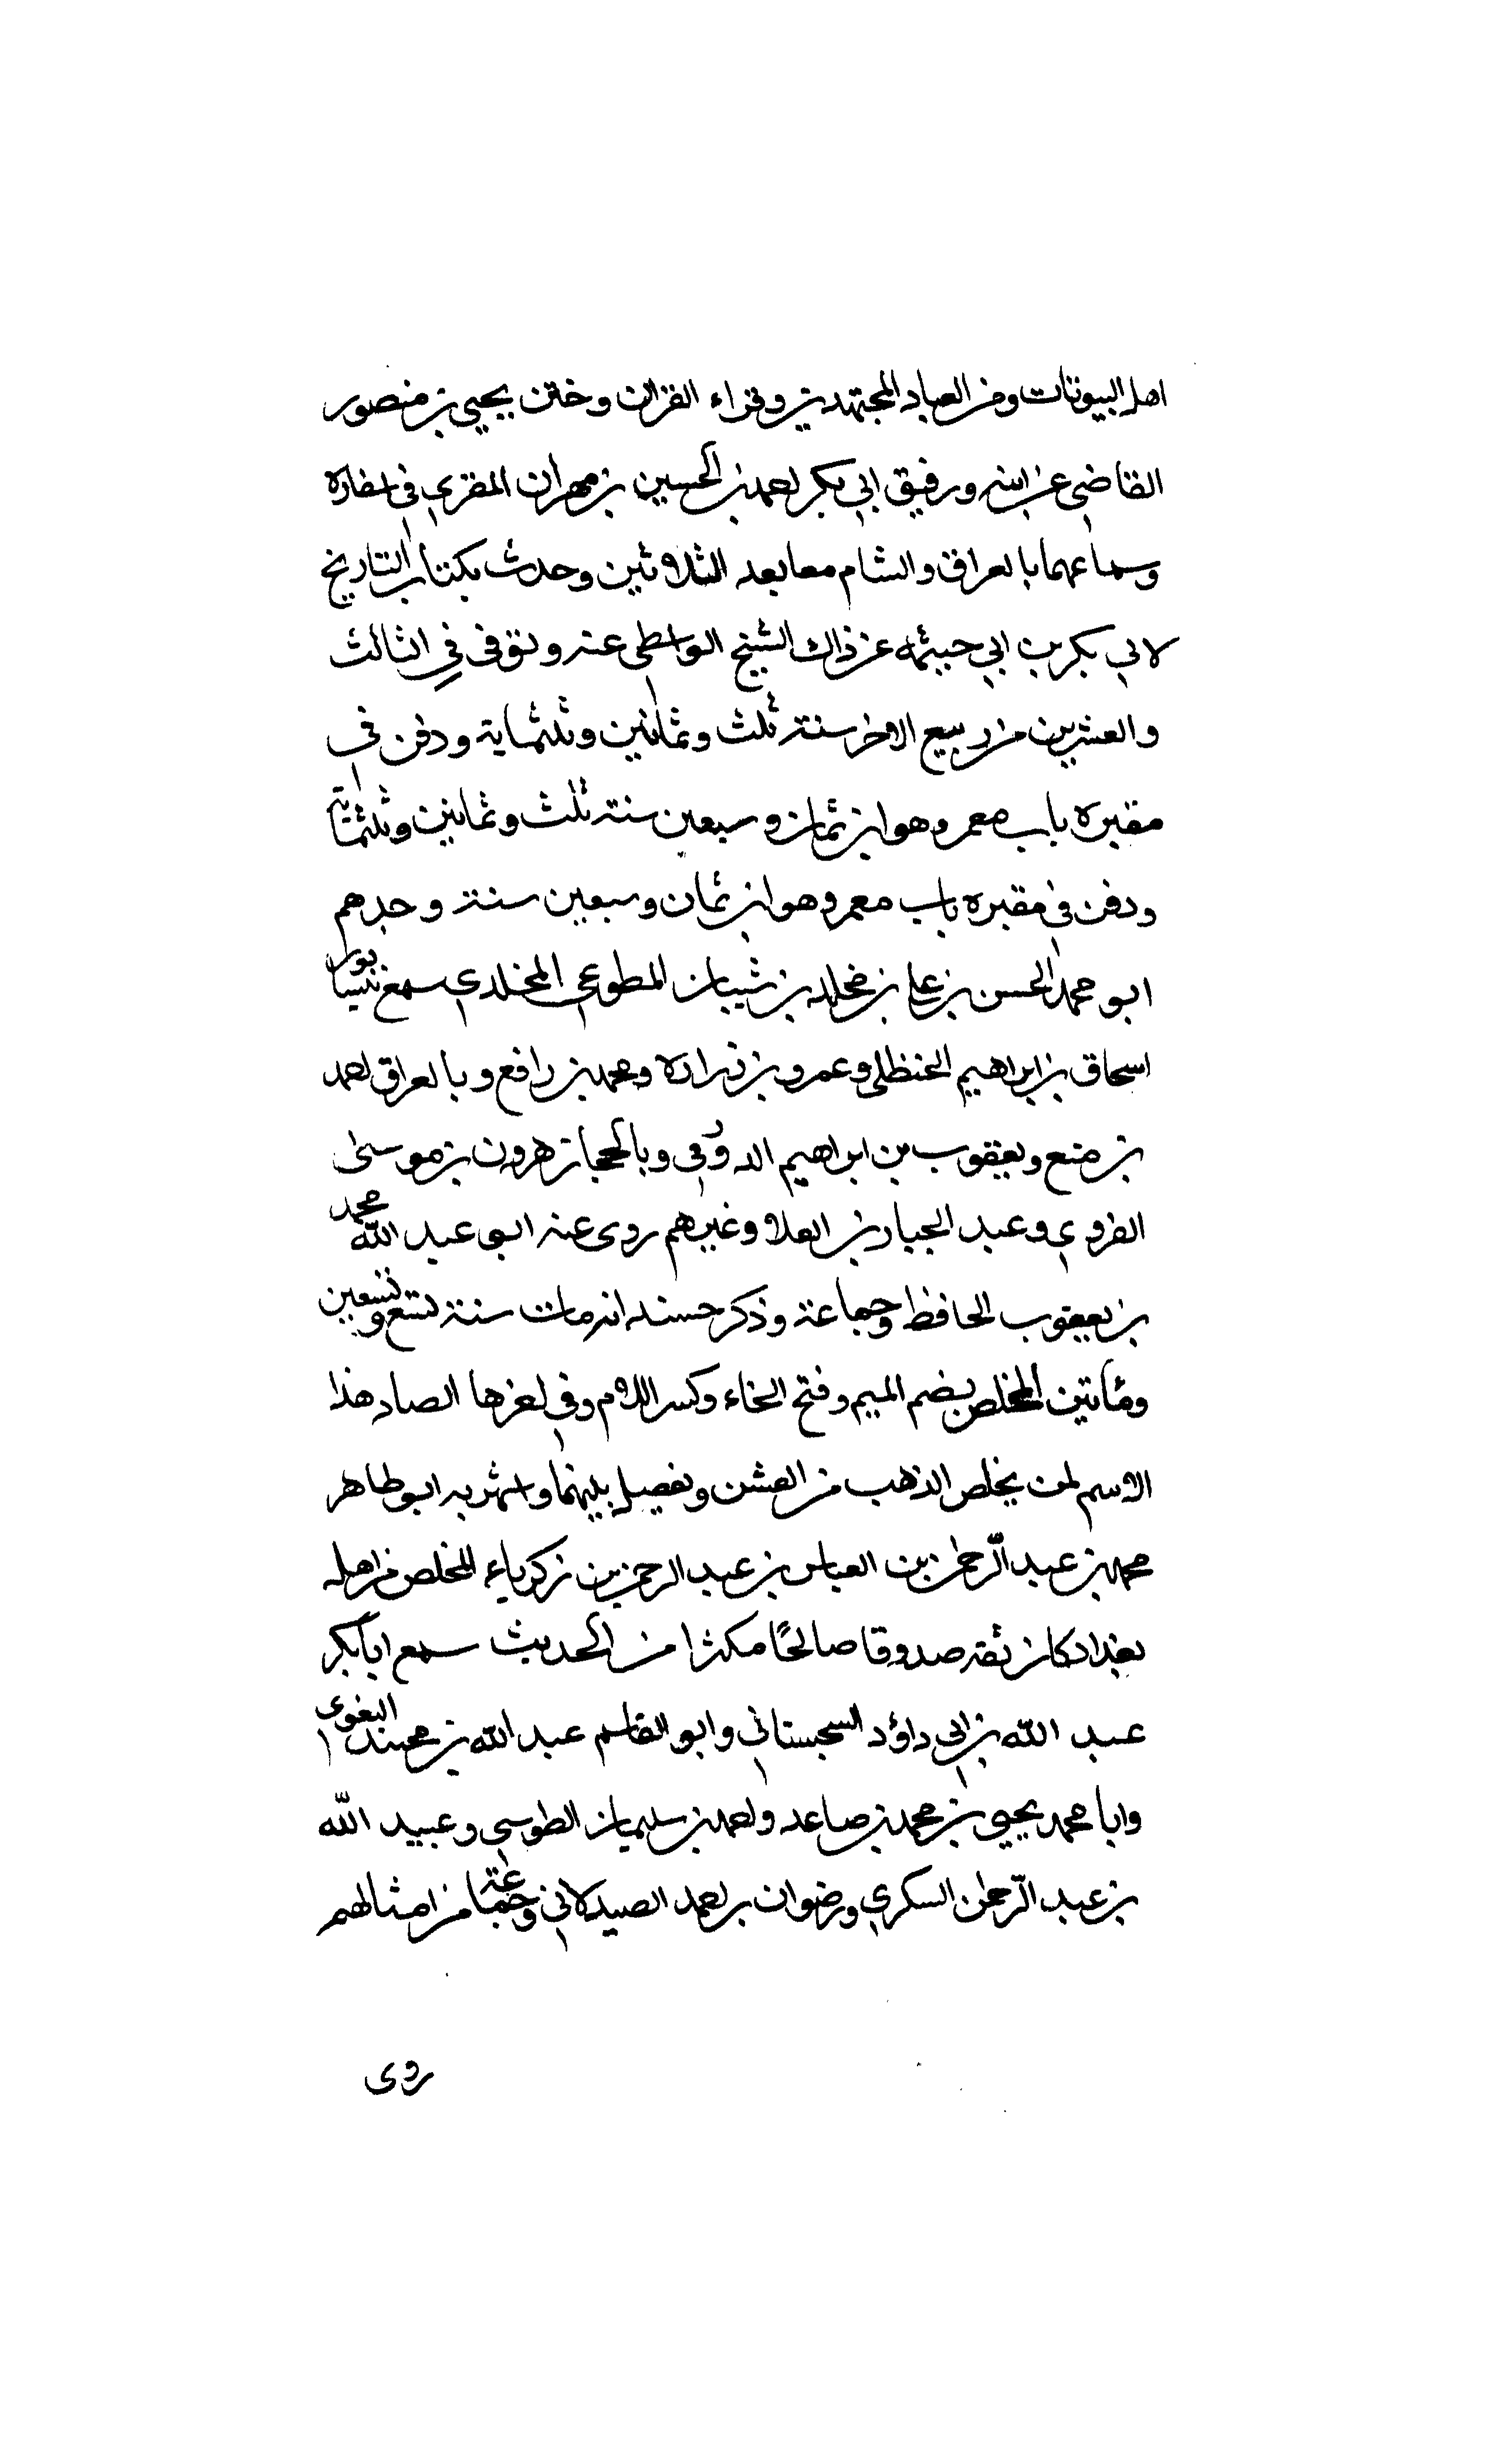 اهل البيوتات ومن العباد المجتهدين وقراء القران وختن يحيي بن منصور
القاضي عن ابنته ورفيق ابي بكر احمد بن الحسين بن مهران المقري في اسفاره
وسماعهما بالعراق والشام معا بعد الثلاثين وحدث بكتاب التاريخ
لابي بكر بن ابي حبيثمه عن ذاك الشيخ الواسطي عنه وتوفى في الثالث
والعشرين من ربيع الاخر سنة ثلث وثمانين وثلثماية ودفن في
مقبره باب معمر وهو ابن ثمان وسبعين سنة ثلث وثمانين وثلثماية
ودفن في مقبره باب معمر وهو ابن ثمان وسبعين سنة وجدهم
ابو محمد الحسن بن علي بن مخلد بن شيبان المطوعي المخلدي سمع نيسابور
اسحاق بن ابراهيم الحنظلي وعمرو بن زراره ومحمد بن رافع وبالعراق احمد
بن منيع ويعقوب بن ابراهيم الدورقي وبالحجاز هرون بن موسى
الفروي وعبد الجبار بن العلا وغيرهم روى عنه ابو عبد الله محمد
بن يعقوب الحافظ وجماعة وذكر حسنه انه مات سنة تسع وتسعين
ومأتين المخلص بضم الميم وفتح الخاء وكسر اللام وفي اخرها الصاد هذا
الاسم لمن يخلص الذهب من الغش ويفصل بينهما واشتهر به ابو طاهر
محمد بن عبد الرحمن بن العباس بن عبد الرحمن بن زكرياء المخلص من اهل
بغداد كان ثقه صدوقا صالحًا مكثرا من الحديث سمع ابا بكر
عبد الله بن ابي داؤد السجستاني وابو القاسم عبد الله بن محمد البغوي
وابا محمد يحيى بن محمد بن صاعد واحمد بن سليمان الطوسي وعبيد الله
بن عبد الرحمن السكري ورضوان بن احمد الصيدلاني وجماعة من امثالهم
روى